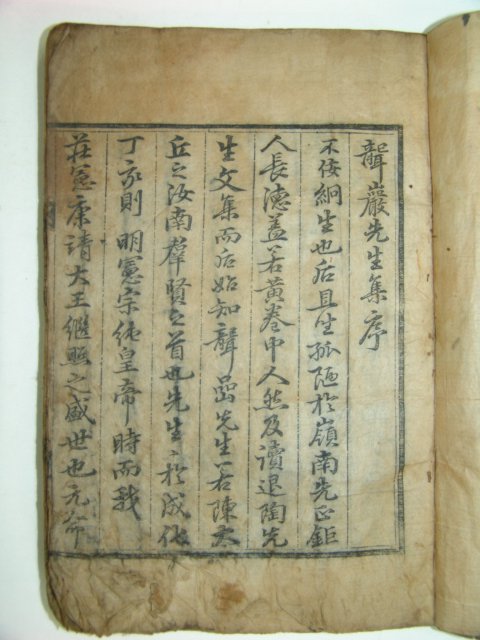 聾巖先生集序
不佞絅生也后且生孤陋於嶺南先正鉅
人長德盖若黃卷中人然及讀退陶先
生文集而后始知聾嵒先生若陳太
丘之汝南羣賢之首也先生於成化
丁亥則 明憲宗純皇帝時而我
莊憲康靖大王繼照之盛世也元命